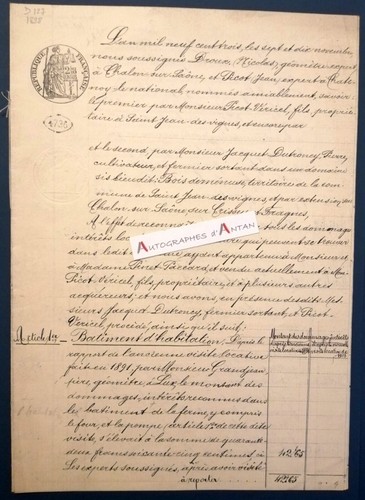 D 157
1825
RÉPUBLIQUE FRANÇAISE
L'an mil neuf cent trois, les sept et dix novembre,
nous soussignés Droux (Nicolas), géomètre expert
à Chalon sur Saône, et Picot Jean, expert à
le national, nommés amiablement, savoir:
Le premier par Monsieur Picot-Véricel, fils, proprié-
taire à Saint Jean-des-vignes, et encore par
et le second, par Monsieur Jacquet Dutroncy, Pierre,
cultivateur, et fermier sortant dans un domaine
sis lieu dit: territoire de la com-
mune de Saint Jean des vignes,
Chalon sur Saône, sur
A l'effet de les dommages
intérêts qui peuvent se trouver
dans ledit ayant appartenu à Monsieur et
à Madame Pinet-Paccard, et venant actuellement à Mr
Picot-Véricel, fils, propriétaire, et à plusieurs autres
acquéreurs: et nous avons, en présence desdits Mes-
sieurs Jacquet-Dutroncy, fermier sortant, et Picot-
Véricel, procédé, ainsi qu'il suit:
AUTOGRAPHES D'ANTAN ©
Article 1er – Bâtiment d'habitation. D'après le
rapport de l'ancienne visite locative
fait en 1891, par Monsieur Grandjean
père, géomètre à Lux, le montant des
dommages, intérêts reconnus dans
les bâtiment de la ferme, y compris
le four, et la pompe, (article 1er de cette dite
visite), s'élevait à la somme de quarante
deux francs soixante cinq centimes, ci 42.65
Les experts soussignés, après avoir visité
à reporter 42.65